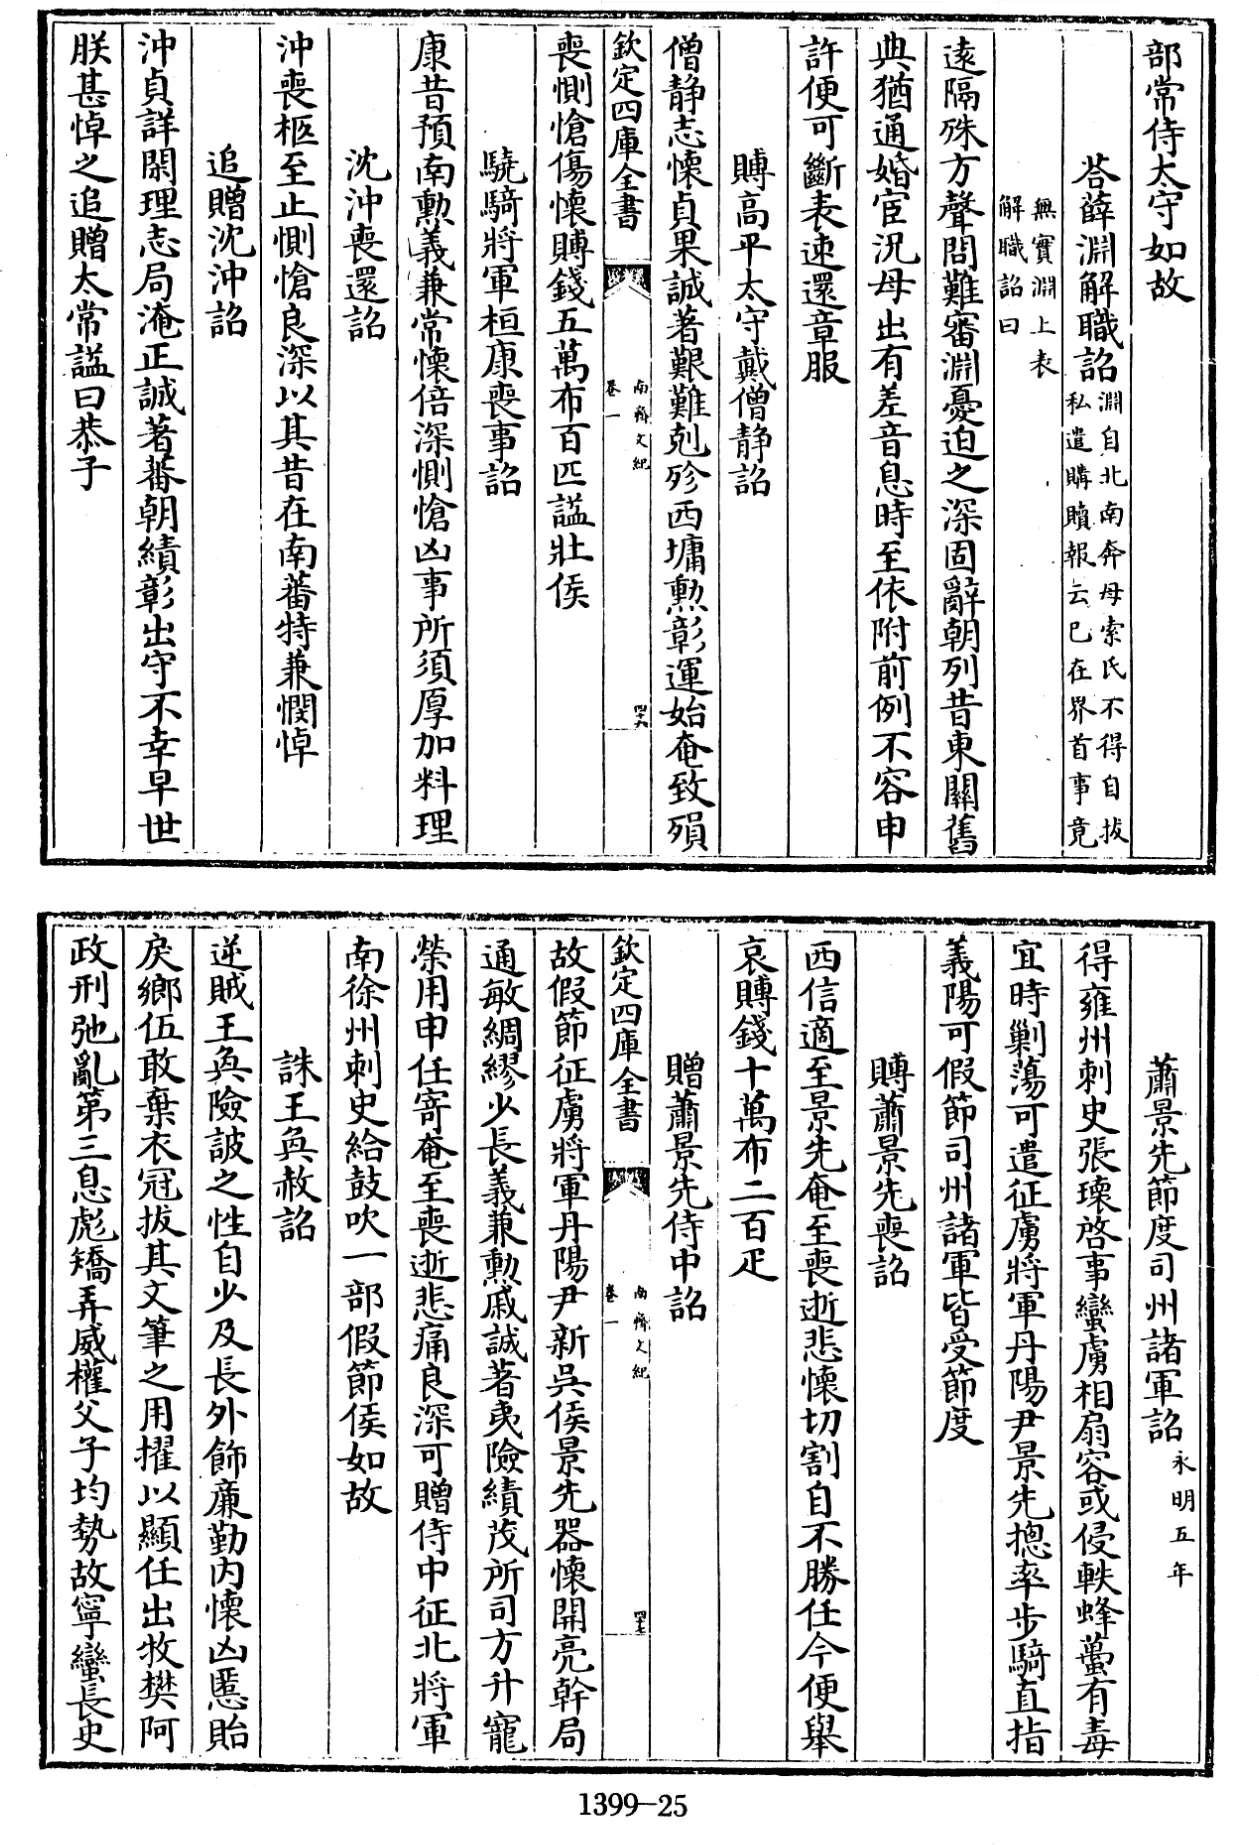 部常侍太守如故
荅薛淵解職詔淵自北南奔母索氏不得自拔
私遣購贖報云已在界首事竟
無實淵上表
解職詔曰
遠隔殊方聲問難審淵憂迫之深固辭朝列昔東關舊
典猶通婚宦況母出有差音息時至依附前例不容申
許便可斷表速還章服
賻高平太守戴僧静詔
僧静志懷貞果誠著艱難剋殄西墉勲彰運始奄致殞
欽定四庫全書
南齊文紀
卷一
四十六
喪惻愴傷懷賻錢五萬布百匹謚壯侯
驍騎將軍桓康喪事詔
康昔預南勲義兼常懷倍深惻愴凶事所須厚加料理
沈沖喪還詔
沖喪柩至止惻愴良深以其昔在南蕃特兼憫悼
追贈沈沖詔
沖貞詳閑理志局淹正誠著蕃朝績彰出守不幸早世
朕甚悼之追贈太常謚曰恭子
蕭景先節度司州諸軍詔永明五年
得雍州刺史張瓌啓事蠻虜相扇容或侵軼蜂蠆有毒
宜時剿蕩可遣征虜將軍丹陽尹景先摠率步騎直指
義陽可假節司州諸軍皆受節度
賻蕭景先喪詔
西信適至景先奄至喪逝悲懷切割自不勝任今便舉
哀賻錢十萬布二百疋
贈蕭景先侍中詔
欽定四庫全書
南齊文紀
卷一
四十七
故假節征虜將軍丹陽尹新吳侯景先器懷開亮幹局
通敏綢繆少長義兼勲戚誠著夷險績茂所司方升寵
榮用申任寄奄至喪逝悲痛良深可贈侍中征北將軍
南徐州刺史給鼓吹一部假節侯如故
誅王奐赦詔
逆賊王奐險詖之性自少及長外飾廉勤内懷凶慝貽
戾鄉伍敢棄衣冠拔其文筆之用擢以顯任出牧樊阿
政刑弛亂第三息彪矯弄威權父子均勢故寧蠻長史
1399-25